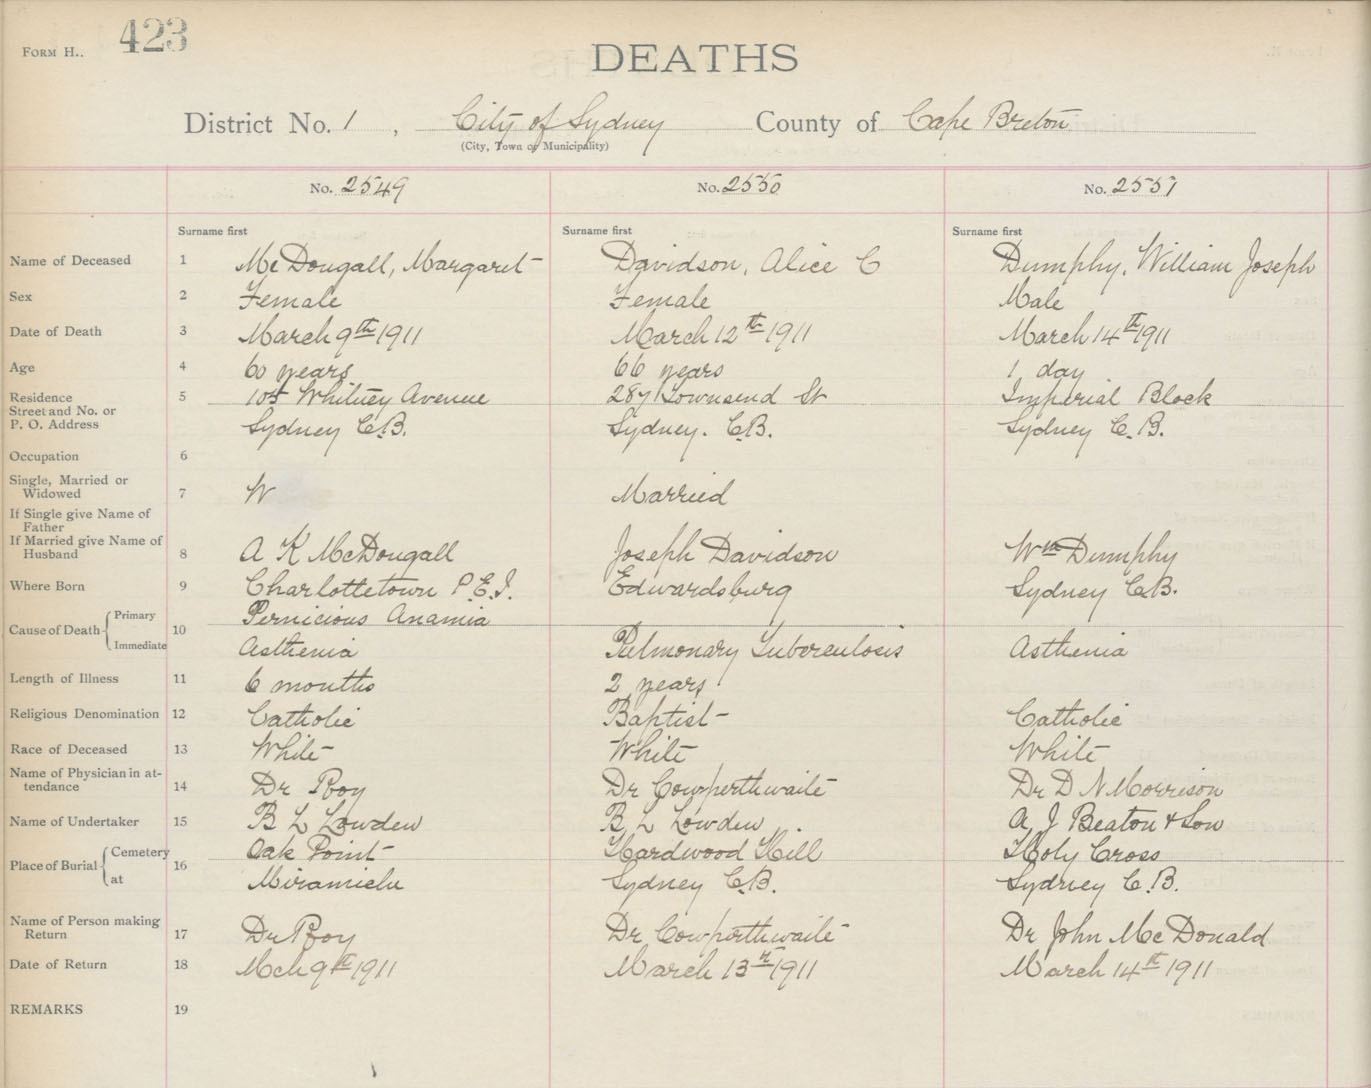 FORM H..
423
DEATHS
District No. 1, City of Sydney County of Cape Breton
(City, Town or Municipality)
No. 2549 No. 2550 No. 2551
Surname first Surname first Surname first
Name of Deceased 1 McDougall, Margaret Davidson, Alice C Dumphy, William Joseph
Sex 2 Female Female Male
Date of Death 3 March 9th 1911 March 12th 1911 March 14th 1911
Age 4 60 years 66 years 1 day
Residence 5 105 Whitney Avenue 287 Townsend St Imperial Block
Street and No. or
P. O. Address Sydney C.B. Sydney. C.B. Sydney C.B.
Occupation 6
Single, Married or
Widowed 7 W Married
If Single give Name of
Father
If Married give Name of
Husband 8 A K McDougall Joseph Davidson Wm Dumphy
Where Born 9 Charlottetown P.E.I. Edwardsburg Sydney C.B.
Cause of Death 10
Primary Pernicious Anamia
Immediate Asthenia Pulmonary Tuberculosis Asthenia
Length of Illness 11 6 months 2 years
Religious Denomination 12 Catholic Baptist Catholic
Race of Deceased 13 White White White
Name of Physician in at-
tendance 14 Dr Roy Dr Cowperthwaite Dr D N Morrison
Name of Undertaker 15 B L Lowden B L Lowden A J Beaton & Son
Place of Burial 16
Cemetery Oak Point Hardwood Hill Holy Cross
at Miramichi Sydney C.B. Sydney C.B.
Name of Person making
Return 17 Dr Roy Dr Cowperthwaite Dr John McDonald
Date of Return 18 Mch 9th 1911 March 13th 1911 March 14th 1911
REMARKS 19